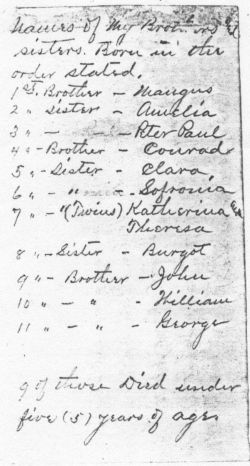 Names of My Brothers &
sisters. Born in the
order stated.
1st. Brother - Mangus
2 " Sister - Amelia
3 " - " - Peter Paul
4 " - Brother - Conrad
5 " - Sister - Clara
6 " - " - Sofronia
7 " - " (Twins) Katherina &
Theresa
8 " - Sister - Burgot
9 " - Brother - John
10 " - " - William
11 " - " - George
9 of those Died under
five (5) years of age.